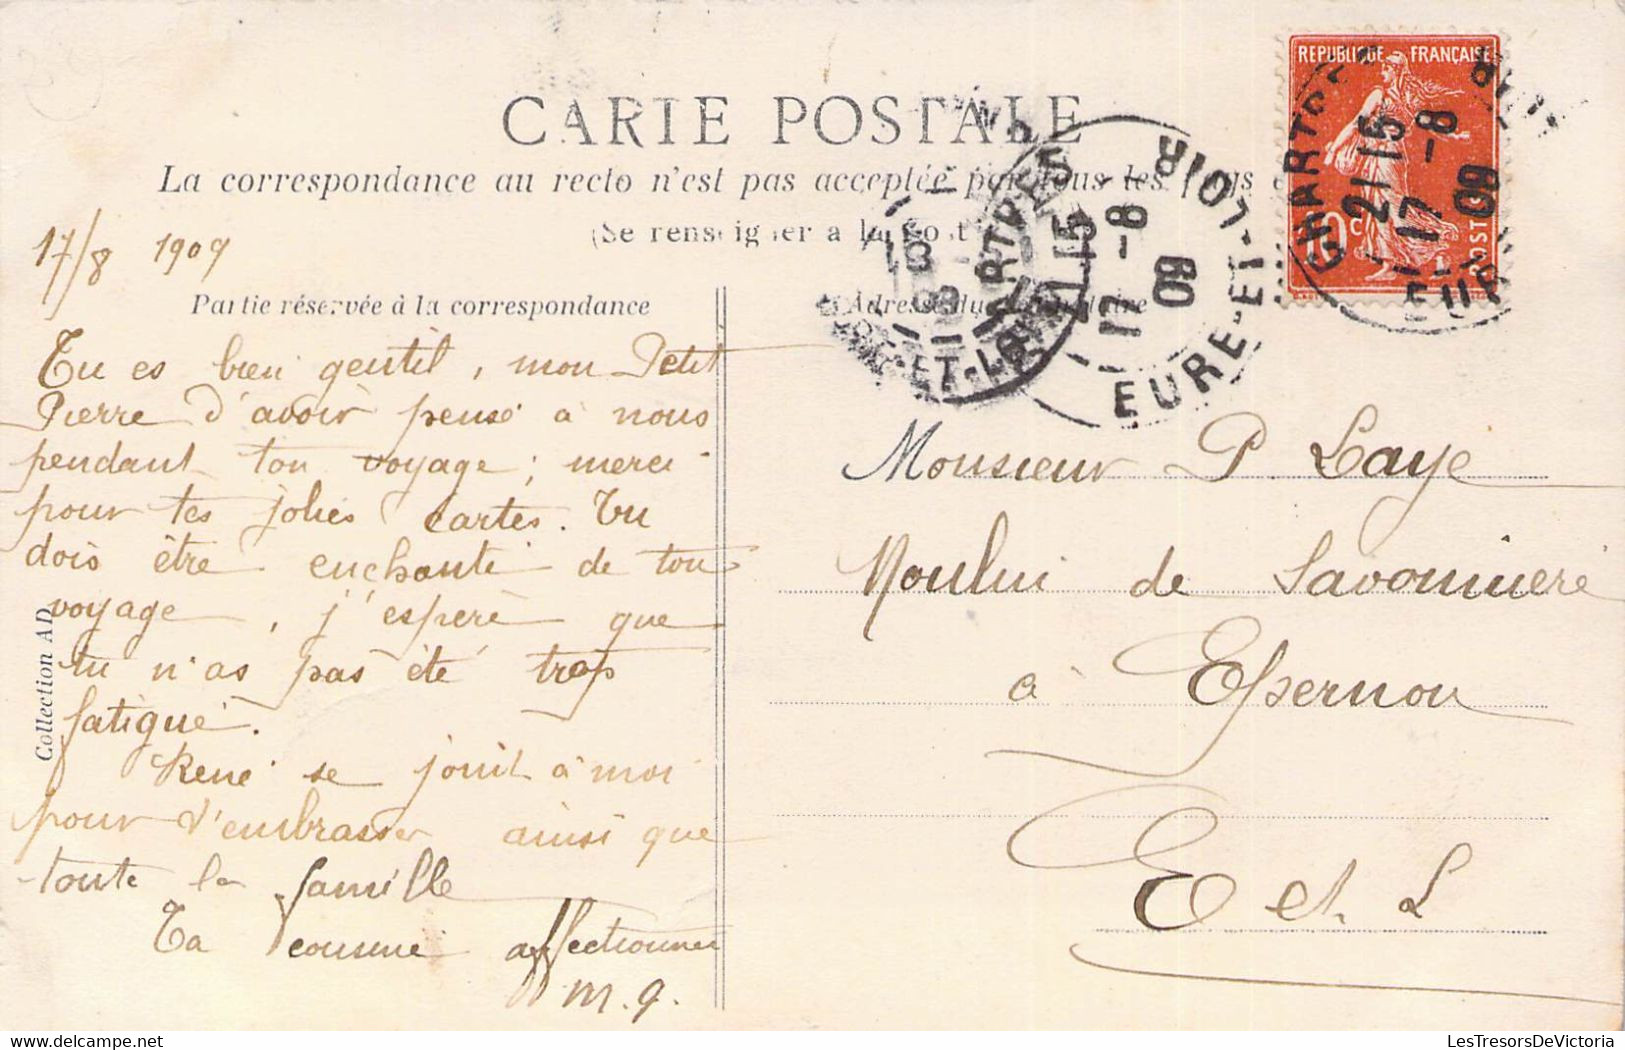 REPUBLIQUE FRANÇAISE
10 c
POSTES
CHARTRES
21 15
17 -8
09
EURE
CARTE POSTALE
La correspondance au recto n'est pas acceptée par tous les pays
(Se renseigner à la Poste
CHARTRES
21 15
17 -8
09
EURE-ET-LOIR
17/8 1909
Partie réservée à la correspondance
Adresse du destinataire
Tu es bien gentil, mon Petit
Pierre d'avoir pensé à nous
pendant ton voyage ; merci
pour tes jolies cartes. Tu
dois être enchanté de ton
voyage, j'espère que
tu n'as pas été trop
fatigué.
René se joint à moi
pour t'embrasser ainsi que
toute la famille
Ta cousine affectionnée
M. G.
Monsieur P. Laye
Moulin de Savonnière
à Epernon
E et L
Collection AD
LesTresorsDeVictoria.com